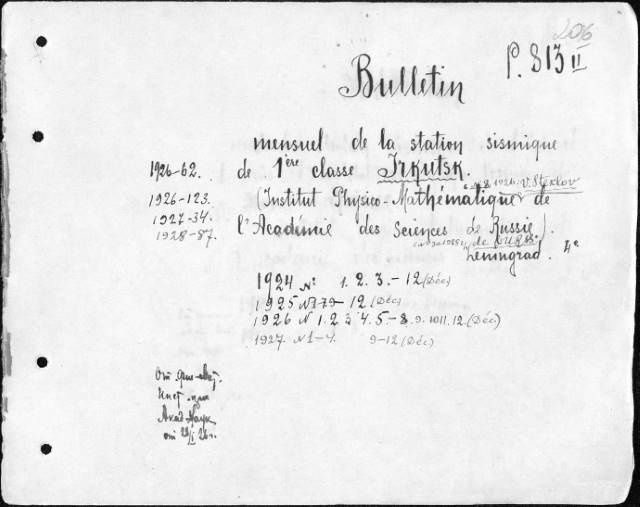 206
P. 813 II
Bulletin
mensuel de la station sismique
de 1ère classe Irkutsk.
V. Steklov
(Institut Physico-Mathématique de
l'Académie des Sciences de Russie).
de l'URSS
Leningrad. 4°
1926-62.
1926-123.
1927-34.
1928-87.
1924 № 1. 2. 3. - 12 (Déc)
1925 № 12 (Déc)
1926 N 1. 2. 3 4. 5 - 8. 9. 10 11. 12 (Déc)
1927. N 1-4. 9-12 (Déc)
От физ-мат.
Инст. при
Акад. Наук